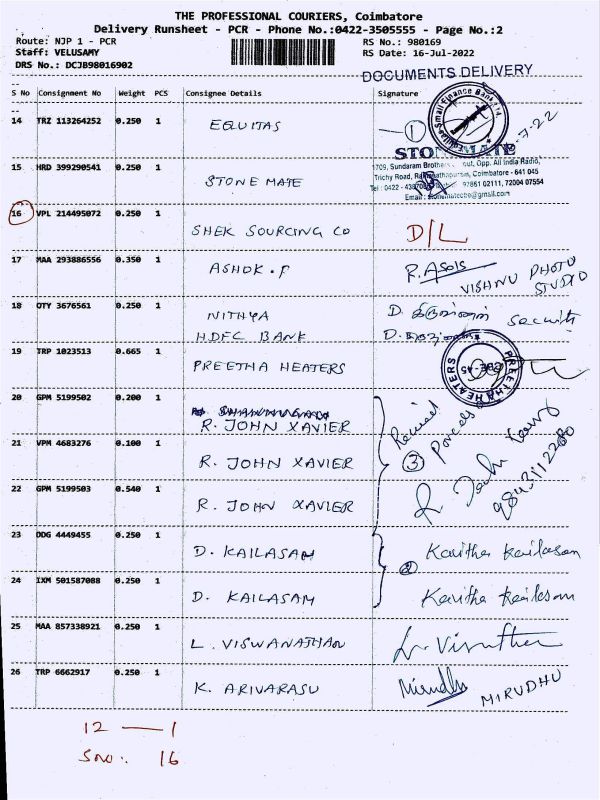 THE PROFESSIONAL COURIERS, Coimbatore
Delivery Runsheet - PCR - Phone No.:0422-3505555 - Page No.:2
Route: NJP 1 - PCR RS No.: 980169
Staff: VELUSAMY RS Date: 16-Jul-2022
DRS No.: DCJB98016902
DOCUMENTS DELIVERY
S No Consignment No Weight PCS Consignee Details Signature
14 TRZ 113264252 0.250 1 EQUITAS 1
Small Finance Bank
STONEMATE
15 HRD 399290541 0.250 1 STONE MATE
1709, Sundaram Brothers Opp. All India Radio,
Trichy Road, Coimbatore - 641 045
Tel : 0422 - 97861 02111, 72004 07554
Email : stonematecbe@gmail.com
16 VPL 214495072 0.250 1 SHEK SOURCING CO D/L
17 MAA 293886556 0.350 1 ASHOK.F
VISHNU PHOTO
STUDIO
18 OTY 3676561 0.250 1 NITHYA
HDFC BANK
19 TRP 1023513 0.665 1 PREETHA HEATERS PREETHA HEATERS CBE-45
20 GPM 5199502 0.200 1
R. JOHN XAVIER
21 VPM 4683276 0.100 1 R. JOHN XAVIER 3 Parcels
22 GPM 5199503 0.540 1 R. JOHN XAVIER
23 DDG 4449455 0.250 1 D. KAILASAM Kavitha Kailasam
24 IXM 501587088 0.250 1 D. KAILASAM Kavitha Kailasam
25 MAA 857338921 0.250 1 L. VISWANATHAN
26 TRP 6662917 0.250 1 K. ARIVARASU MIRUDHU
12 — 1
Sno: 16